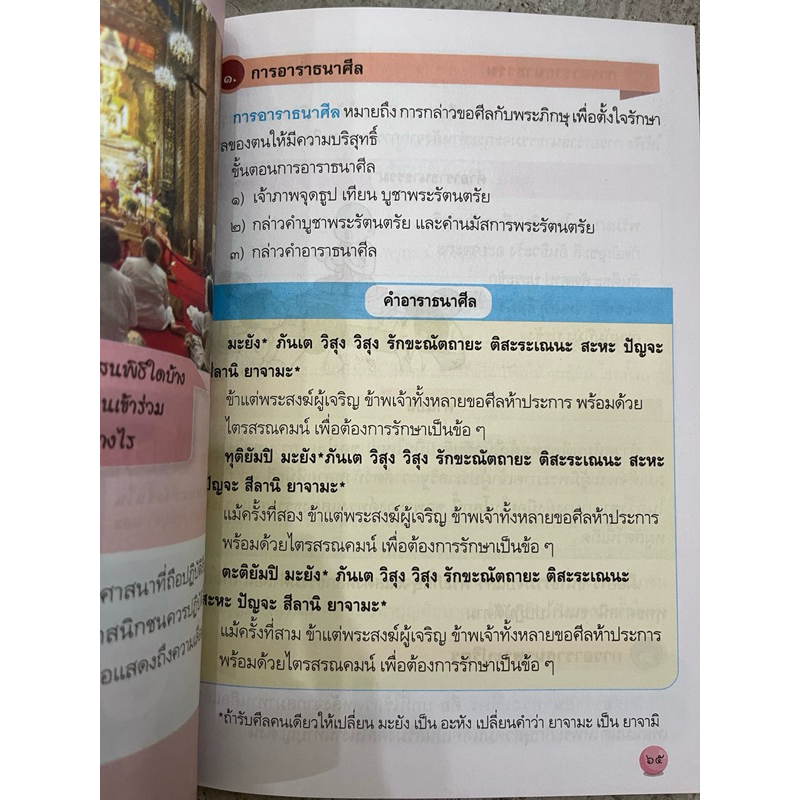 ๑. การอาราธนาศีล
การอาราธนาศีล หมายถึง การกล่าวขอศีลกับพระภิกษุ เพื่อตั้งใจรักษา
ลของตนให้มีความบริสุทธิ์
ขั้นตอนการอาราธนาศีล
๑) เจ้าภาพจุดธูป เทียน บูชาพระรัตนตรัย
๒) กล่าวคำบูชาพระรัตนตรัย และคำนมัสการพระรัตนตรัย
๓) กล่าวคำอาราธนาศีล
คำอาราธนาศีล
มะยัง* ภันเต วิสุง วิสุง รักขะณัตถายะ ติสะระเณนะ สะหะ ปัญจะ
ลานิ ยาจามะ*
ข้าแต่พระสงฆ์ผู้เจริญ ข้าพเจ้าทั้งหลายขอศีลห้าประการ พร้อมด้วย
ไตรสรณคมน์ เพื่อต้องการรักษาเป็นข้อ ๆ
ทุติยัมปิ มะยัง*ภันเต วิสุง วิสุง รักขะณัตถายะ ติสะระเณนะ สะหะ
ปัญจะ สีลานิ ยาจามะ*
แม้ครั้งที่สอง ข้าแต่พระสงฆ์ผู้เจริญ ข้าพเจ้าทั้งหลายขอศีลห้าประการ
พร้อมด้วยไตรสรณคมน์ เพื่อต้องการรักษาเป็นข้อ ๆ
ตะติยัมปิ มะยัง* ภันเต วิสุง วิสุง รักขะณัตถายะ ติสะระเณนะ
สะหะ ปัญจะ สีลานิ ยาจามะ*
แม้ครั้งที่สาม ข้าแต่พระสงฆ์ผู้เจริญ ข้าพเจ้าทั้งหลายขอศีลห้าประการ
พร้อมด้วยไตรสรณคมน์ เพื่อต้องการรักษาเป็นข้อ ๆ
*ถ้ารับศีลคนเดียวให้เปลี่ยน มะยัง เป็น อะหัง เปลี่ยนคำว่า ยาจามะ เป็น ยาจามิ
๖๕
นพิธีใดบ้าง
นเข้าร่วม
างไร
ศาสนาที่ถือปฏิบัติ
าสนิกชนควรปฏิ
อแสดงถึงความ